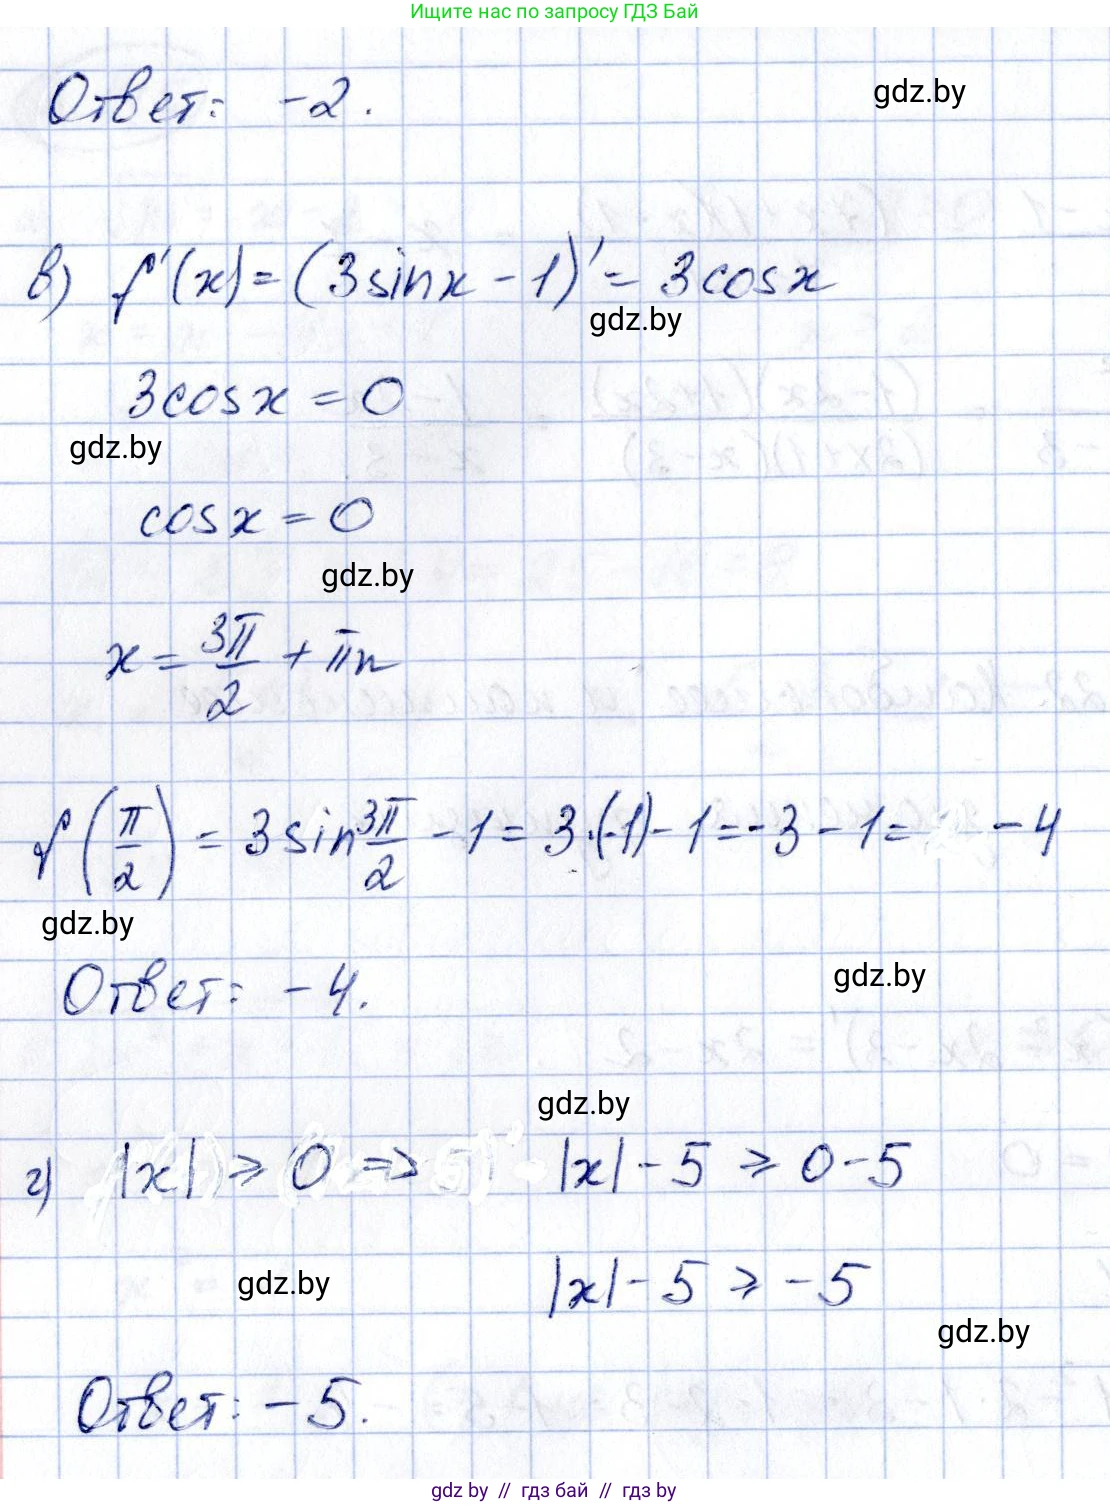 Ищите нас по запросу ГДЗ Бай
Ответ: -2.
gdz.by
в) f'(x) = (3sinx - 1)' = 3cosx
gdz.by
3cosx = 0
gdz.by
cosx = 0
gdz.by
x = 3π/2 + πn
f(π/2) = 3sin 3π/2 - 1 = 3·(-1) - 1 = -3 - 1 = -4
gdz.by
Ответ: -4.
gdz.by
gdz.by
г) |x| ⩾ 0 => |x| - 5 ⩾ 0 - 5
gdz.by
|x| - 5 ⩾ -5
gdz.by
Ответ: -5.
gdz.by // гдз бай // гдз by